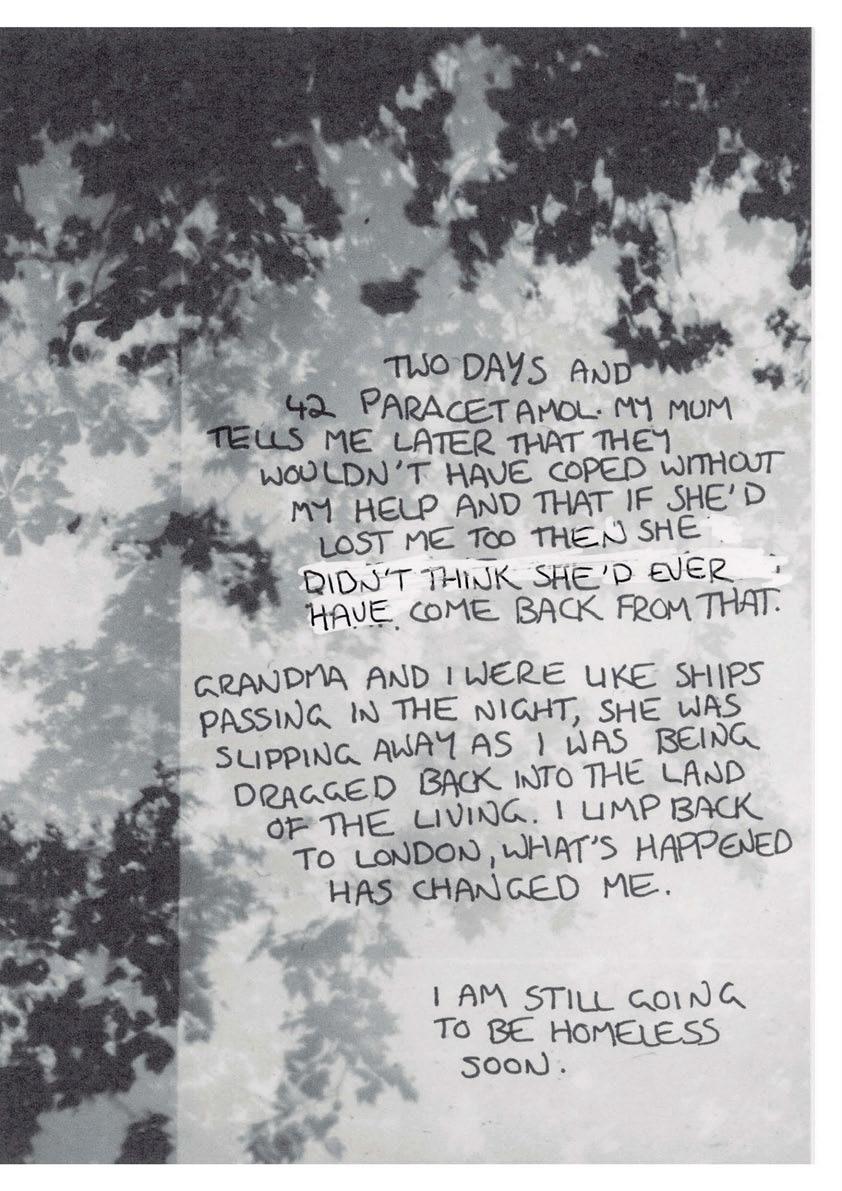 TWO DAYS AND
42 PARACETAMOL. MY MUM
TELLS ME LATER THAT THEY
WOULDN'T HAVE COPED WITHOUT
MY HELP AND THAT IF SHE'D
LOST ME TOO THEN SHE
DIDN'T THINK SHE'D EVER
HAVE COME BACK FROM THAT.
GRANDMA AND I WERE LIKE SHIPS
PASSING IN THE NIGHT, SHE WAS
SLIPPING AWAY AS I WAS BEING
DRAGGED BACK INTO THE LAND
OF THE LIVING. I LIMP BACK
TO LONDON, WHAT'S HAPPENED
HAS CHANGED ME.
I AM STILL GOING
TO BE HOMELESS
SOON.